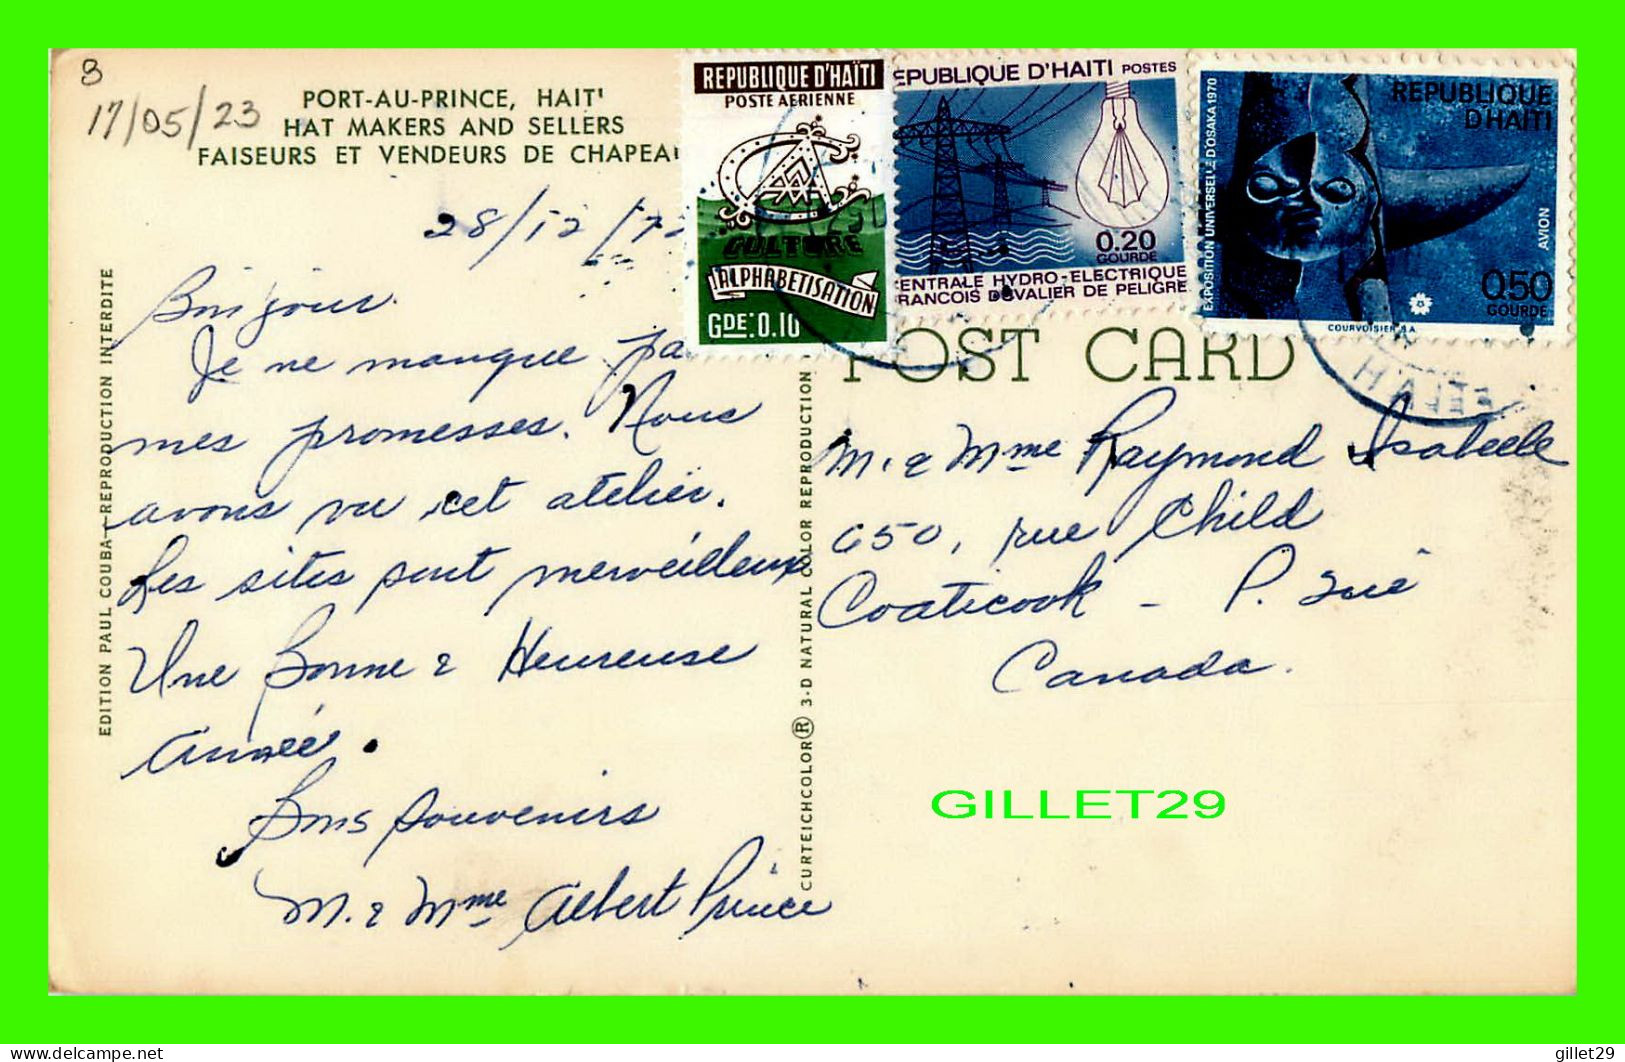 8
17/05/23
PORT-AU-PRINCE, HAITI
HAT MAKERS AND SELLERS
FAISEURS ET VENDEURS DE CHAPEA
28/12/7
Bonjour.
Je ne manque pa
mes promesses. Nous
avons vu cet atelier.
Les sites sont merveilleux
Une Bonne & Heureuse
année.
Bons souvenirs
M. & Mme Albert Prince
EDITION PAUL COUBA—REPRODUCTION INTERDITE
CURTEICHCOLOR® 3-D NATURAL COLOR REPRODUCTION
REPUBLIQUE D'HAÏTI
POSTE AERIENNE
CULTURE
ALPHABETISATION
GDE:0.10
EPUBLIQUE D'HAITI POSTES
0.20
GOURDE
ENTRALE HYDRO-ELECTRIQUE
RANCOIS DUVALIER DE PELIGRE
EXPOSITION UNIVERSELLE D'OSAKA 1970
REPUBLIQUE
D'HAITI
AVION
0.50
GOURDE
COURVOISIER S.A.
HAITI
POST CARD
M. & Mme Raymond Isabelle
650, rue Child
Coaticook - P. Qué
Canada.
GILLET29
delcampe.net
gillet29